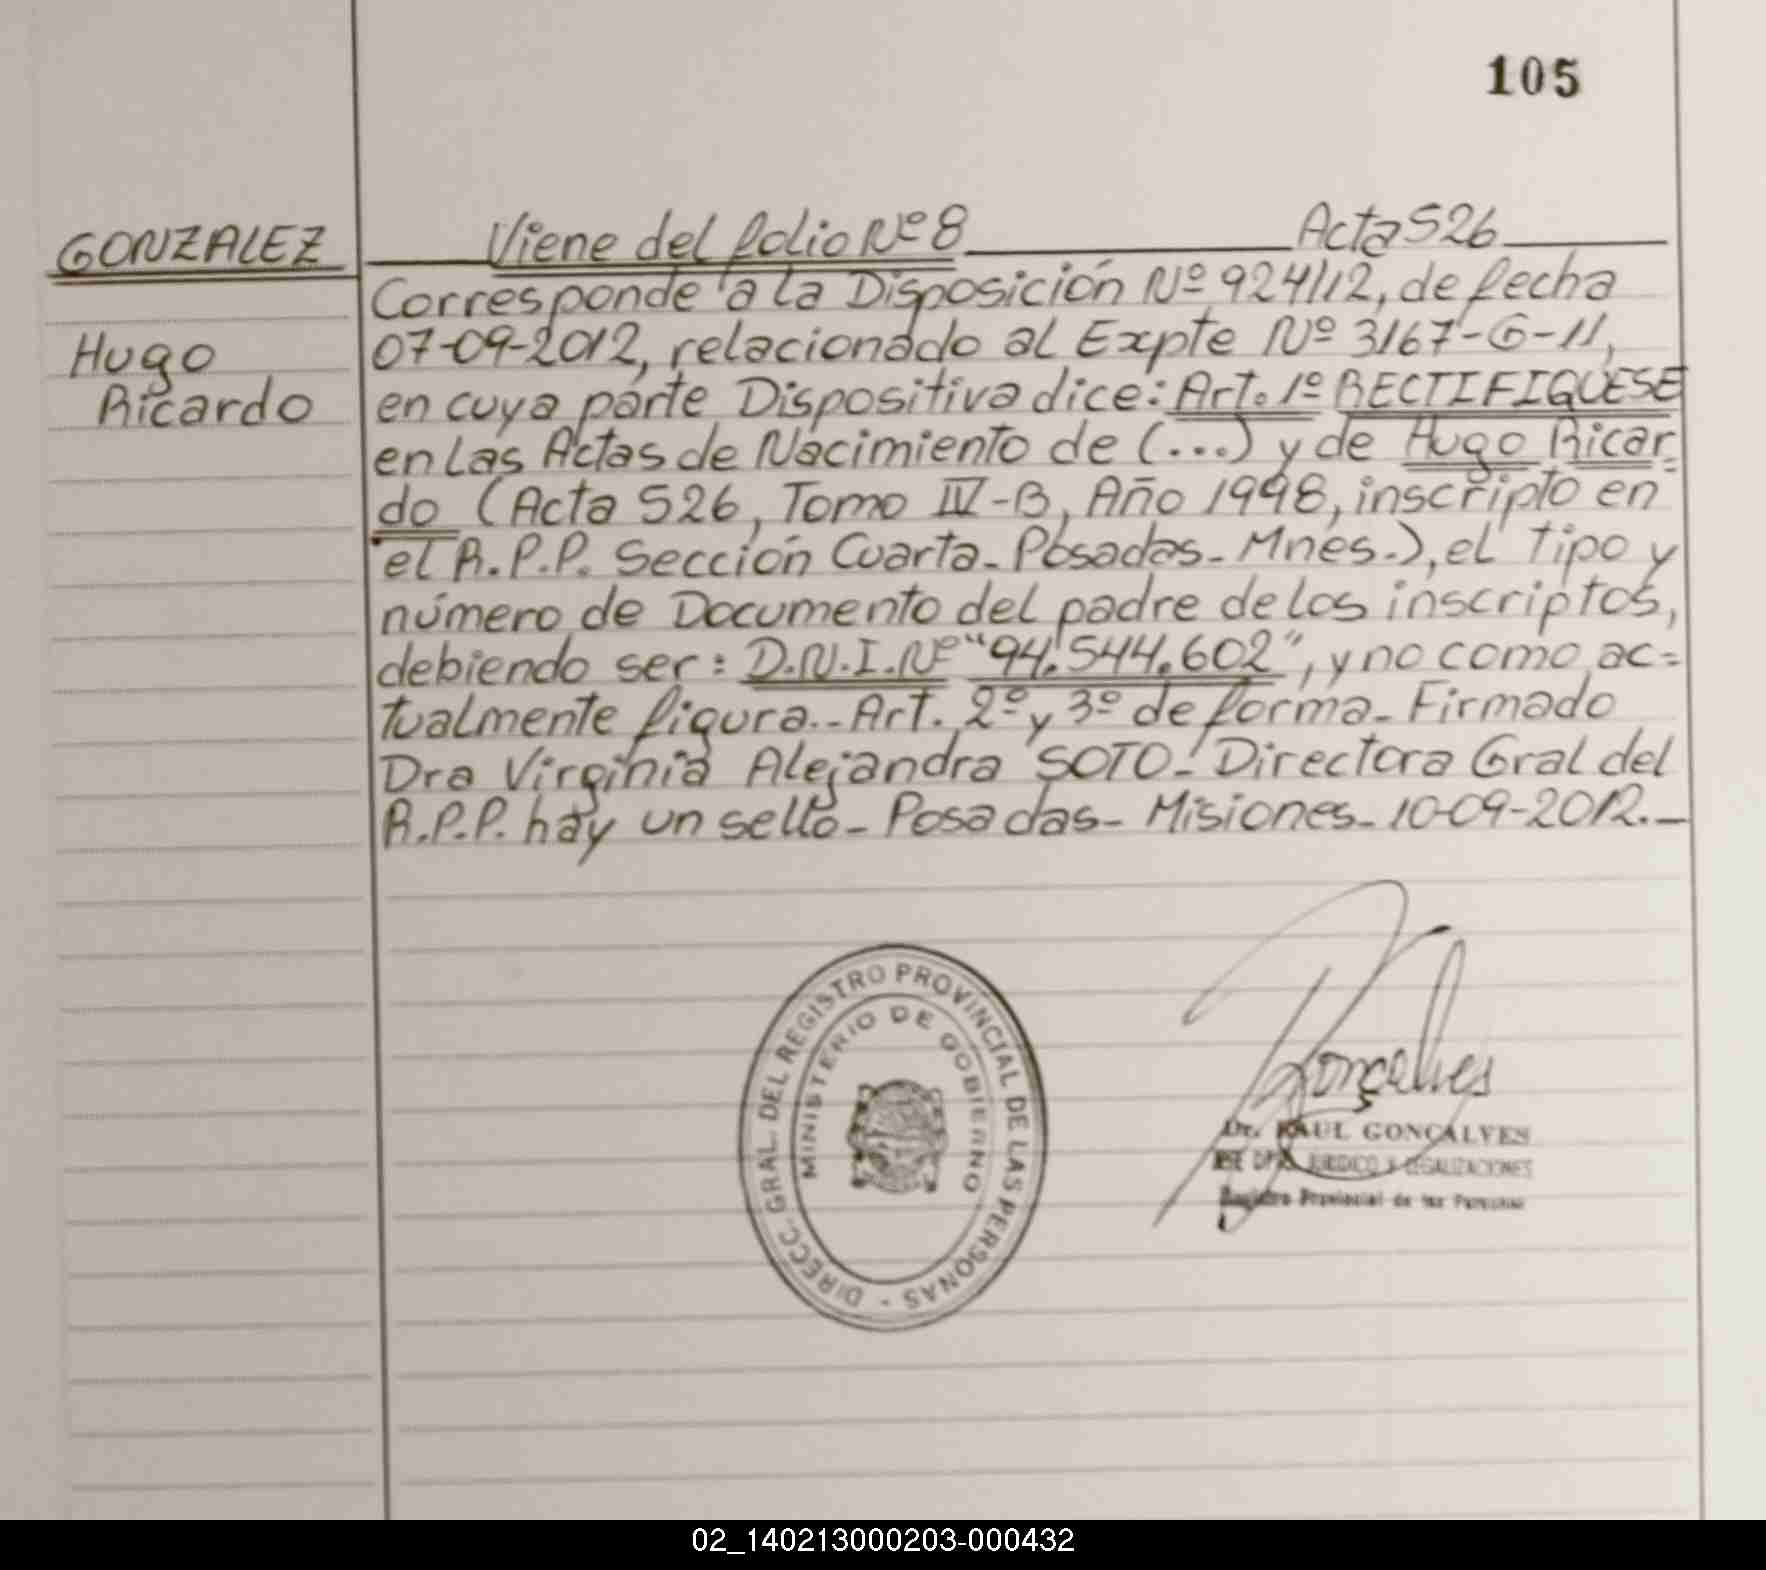 105
GONZALEZ
Hugo
Ricardo
Viene del folio Nº 8 Acta 526
Corresponde a la Disposición Nº 924/12, de fecha
07-09-2012, relacionado al Expte Nº 3167-G-11,
en cuya parte Dispositiva dice: Art. 1º RECTIFIQUESE
en las Actas de Nacimiento de (...) y de Hugo Ricar-
do (Acta 526, Tomo IV-B, Año 1998, inscripto en
el R.P.P. Sección Cuarta- Posadas- Mnes.), el tipo y
número de Documento del padre de los inscriptos,
debiendo ser: D.N.I. Nº "94.544.602", y no como ac=
tualmente figura.- Art. 2º y 3º de forma- Firmado
Dra Virginia Alejandra SOTO- Directora Gral del
R.P.P. hay un sello- Posadas- Misiones- 10-09-2012.-
DIRECC. GRAL. DEL REGISTRO PROVINCIAL DE LAS PERSONAS -
MINISTERIO DE GOBIERNO
Gonçalves
Dr. RAUL GONÇALVES
JURIDICO Y LEGALIZACIONES
Registro Provincial de las Personas
02_140213000203-000432